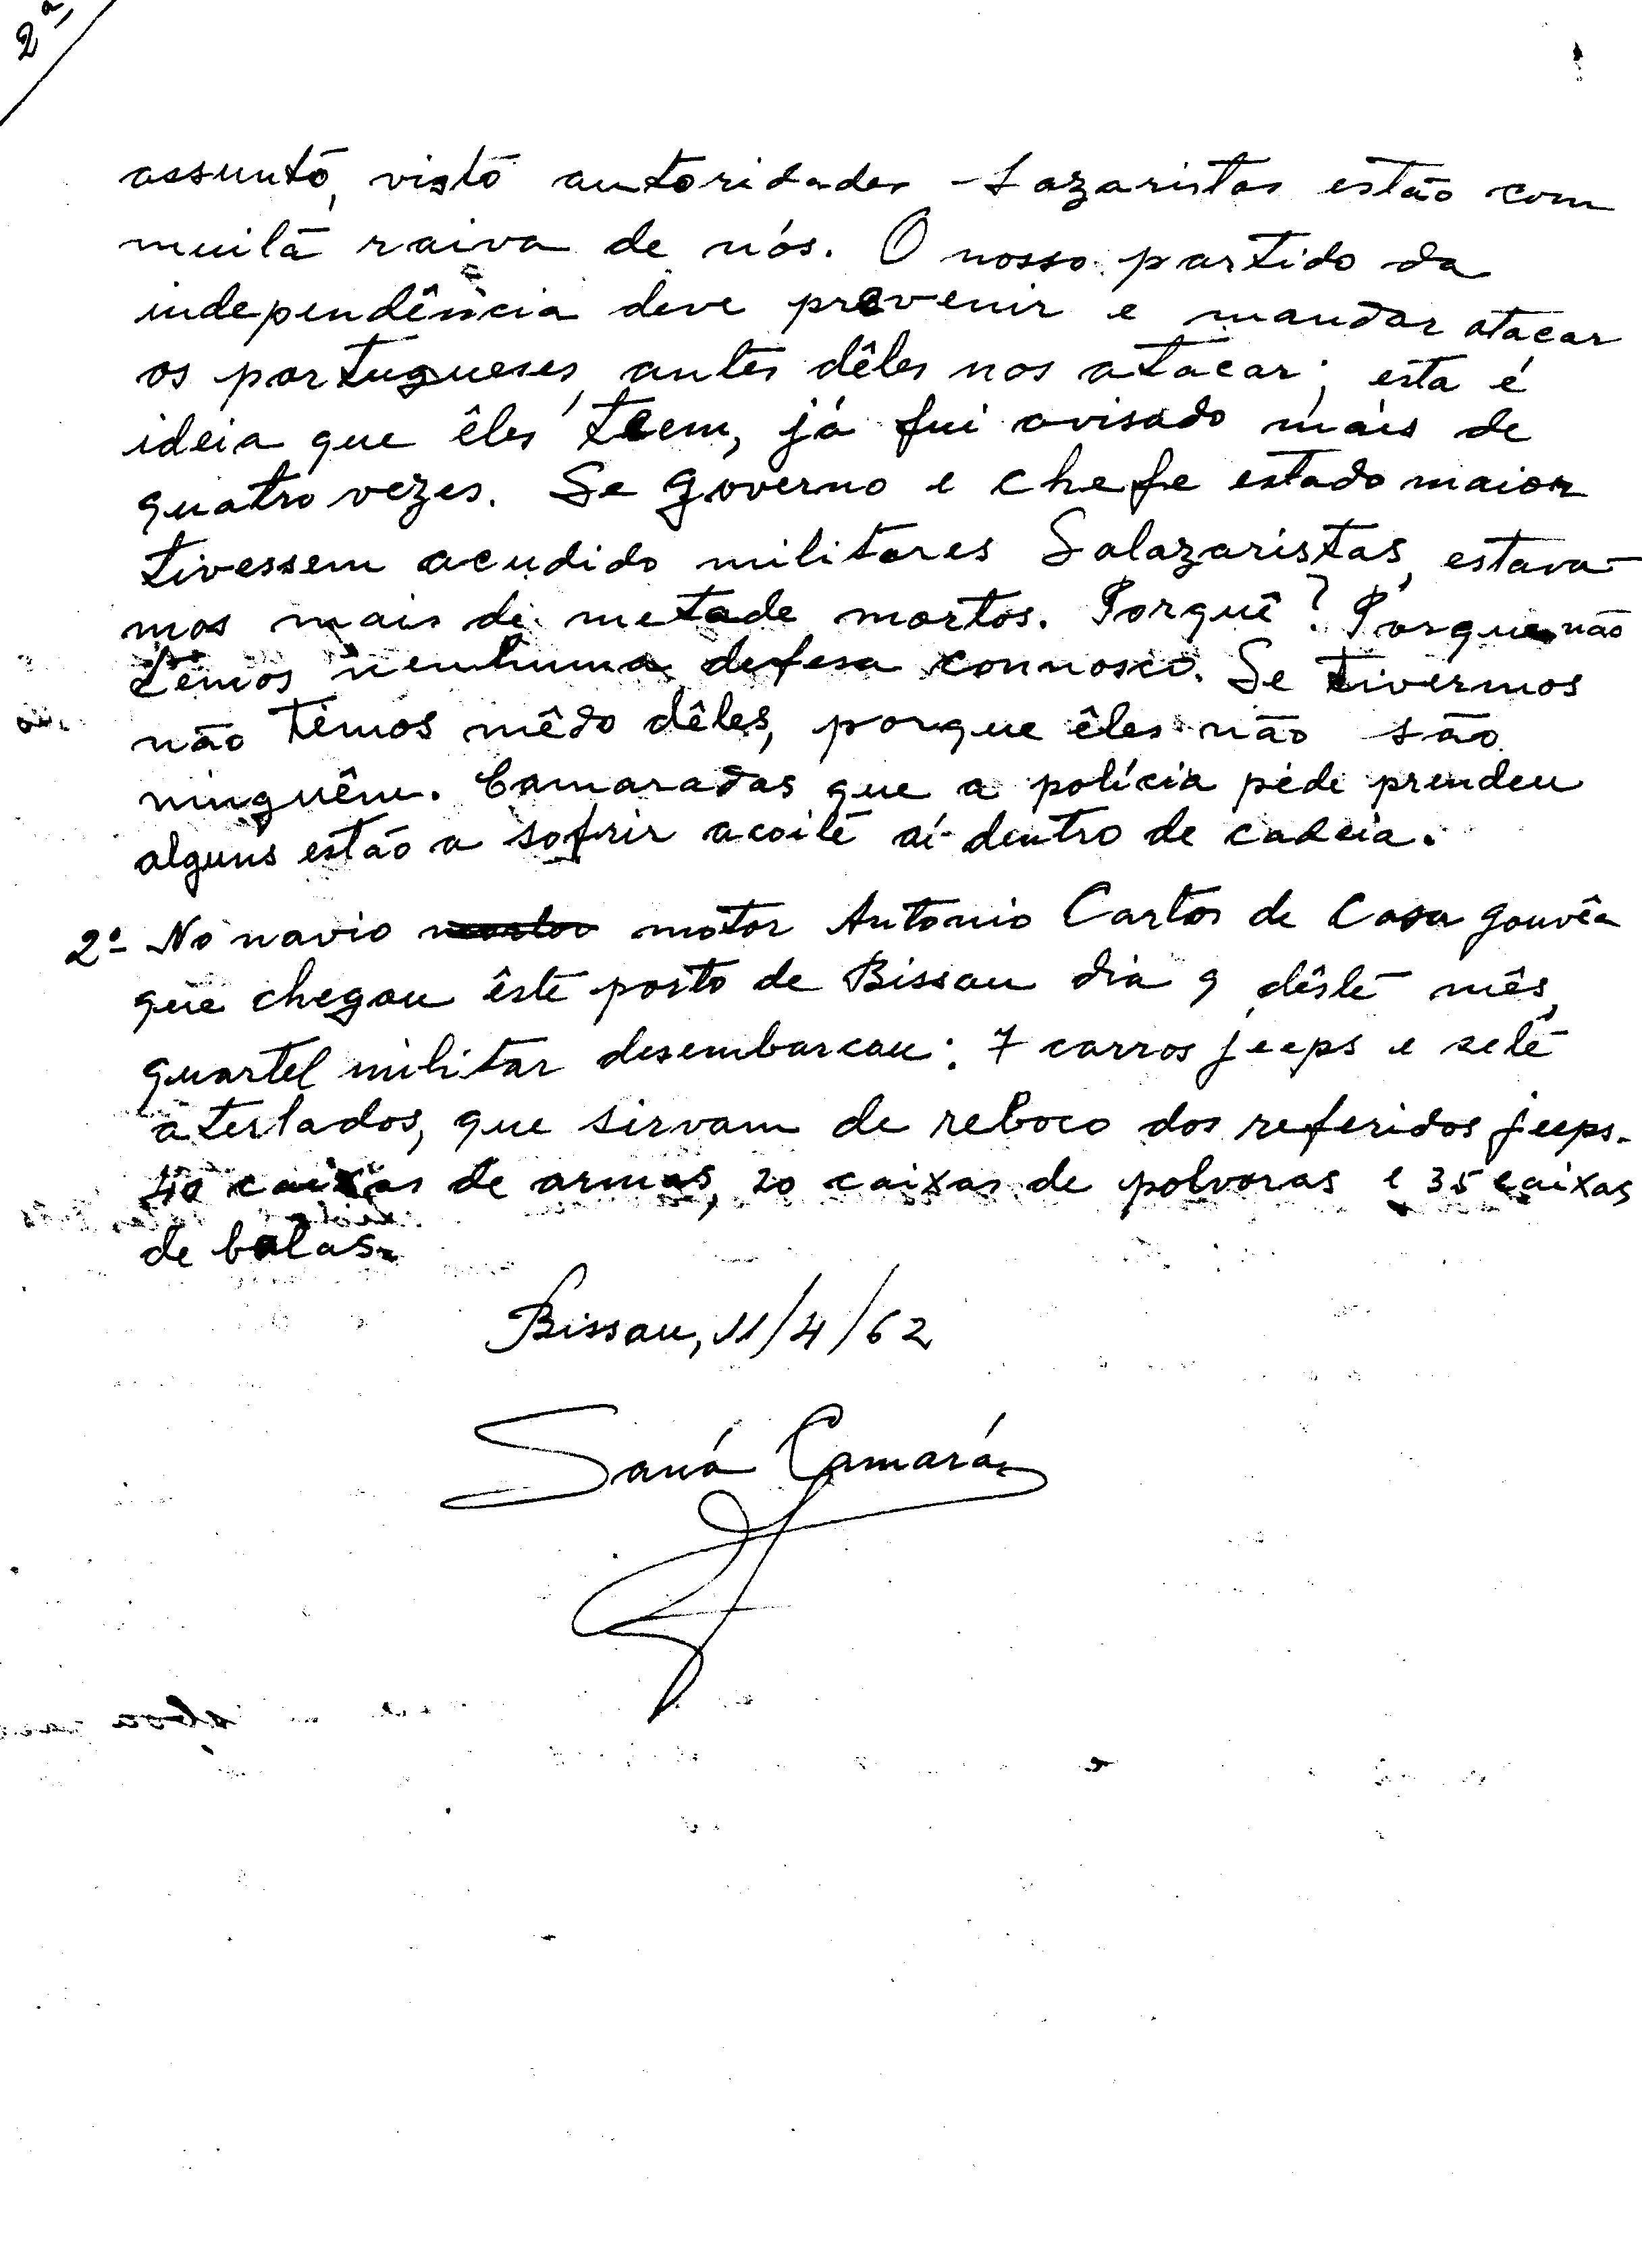 2ª
assunto, visto autoridades Lazaristas estão com
muita raiva de nós. O nosso partido da
independência deve prevenir e mandar atacar
os portugueses, antes dêles nos atacar; esta é
ideia que êles teem, já fui avisado mais de
quatro vezes. Se governo e chefe estado maior
tivessem acudido militares Salazaristas, estava-
mos mais de metade mortos. Porquê? Porque não
têmos nenhuma defesa connosco. Se tivermos
não têmos mêdo dêles, porque êles não são
ninguêm. Camaradas que a polícia pide prendeu
alguns estão a sofrir acoite aí dentro de cadeia.
2º- No navio motor Antonio Carlos de Casa Gouvêa
que chegou êste porto de Bissau dia 9 dêste mês,
quartel militar desembarcou: 7 carros jeeps e sete
atestados, que sirvam de reboco dos referidos jeeps.
40 caixas de armas, 20 caixas de polvoras e 35 caixas
de balas.
Bissau, 11/4/62
Saná Camará